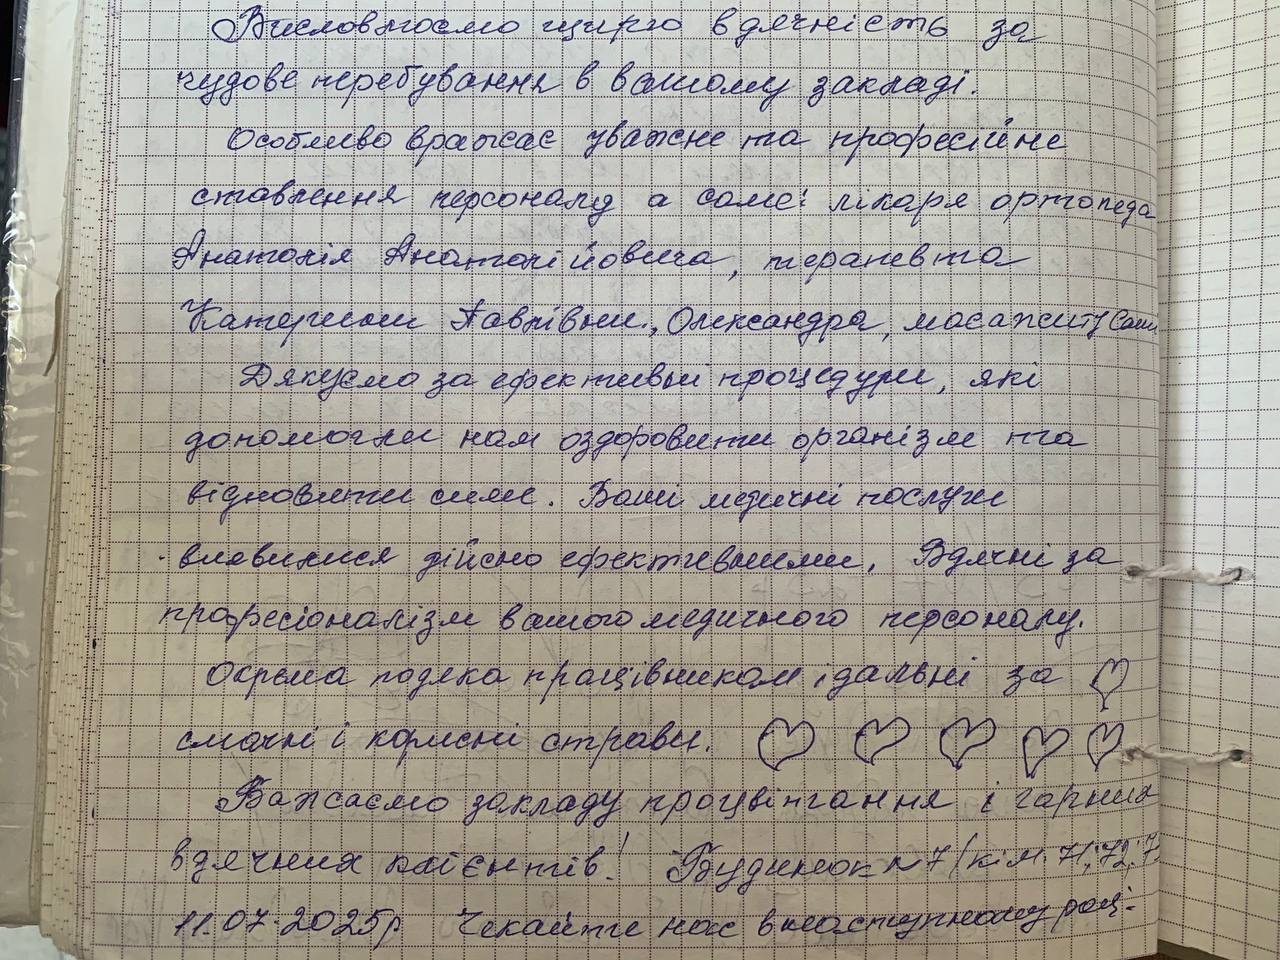 Висловлюємо щиру вдячність за
чудове перебування в вашому закладі.
Особливо вражає уважне та професійне
ставлення персоналу а саме: лікаря ортопеда
Анатолія Анатолійовича, терапевта
Катерини Павлівни, Олександра, масажисту Саші
Дякуємо за ефективні процедури, які
допомогли нам оздоровити організм та
відновити сили. Ваші медичні послуги
виявилися дійсно ефективними. Вдячні за
професіоналізм вашого медичного персоналу.
Окрема подяка працівникам їдальні за
смачні і корисні страви.
Бажаємо закладу процвінтання і гарних
вдячних клієнтів! Будинок №7 (кім. 71, 72, 7
11.07.2025р Чекайте нас в наступному році.